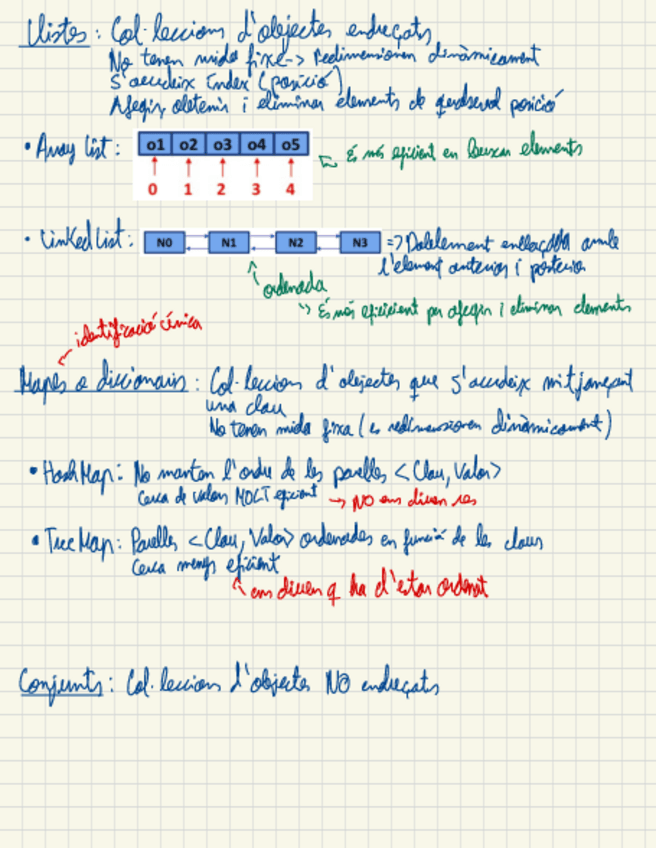 Llistes: Col·leccions d'objectes endreçats
No tenen mida fixe -> redimensionen dinàmicament
S'accedeix índex (posició)
Afegir, obtenir i eliminar elements de qualsevol posició
• Array List:
o1 o2 o3 o4 o5
0 1 2 3 4
És més eficient en buscar elements
• Linked List:
N0 N1 N2 N3
=> Doblement enllaçada amb
l'element anterior i posterior
ordenada
És més eficient per afegir i eliminar elements
identificació única
Mapes o diccionaris: Col·leccions d'objectes que s'accedeix mitjançant
una clau
No tenen mida fixa (es redimensionen dinàmicament)
• HashMap: No manten l'ordre de les parelles <Clau, Valor>
Cerca de valors MOLT eficient -> NO ens diuen res
• TreeMap: Parelles <Clau, Valor> ordenades en funció de les claus
Cerca menys eficient
ens diuen q ha d'estar ordenat
Conjunts: Col·leccions d'objectes NO endreçats